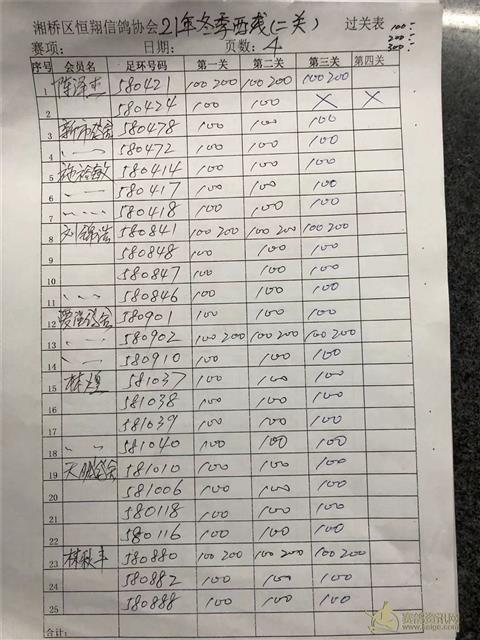 湘桥区恒翔信鸽协会21年冬季西线(二关) 过关表 100:
赛项: 日期: 页数: 4 200:
300:
序号 会员名 足环号码 第一关 第二关 第三关 第四关
1 陈泽杰 580421 100 200 100 200 100 200
2 580424 100 100 × ×
3 580478 100 100 100
4 〃 580472 100 100 100
5 580414 100 100 100
6 〃 580417 100 100 100
7 〃 580418 100 100 100
8 刘锦浩 580841 100 200 100 200 100 200
9 580848 100 100 100
10 580847 100 100 100
11 〃 580846 100 100 100
12 580901 100 100 100
13 〃 580902 100 200 100 200 100 200
14 〃 580910 100 100 100
15 林煌 581037 100 100 100
16 581038 100 100 100
17 581039 100 100 100
18 〃 581040 100 100 100
19 天鹏鸽舍 581010 100 100 100
20 581006 100 100 100
21 580118 100 100 100
22 580116 100 100 100
23 林秋丰 580880 100 200 100 200 100 200
24 580882 100 100 100
25 580888 100 100 100
合计:
赛鸽资讯网